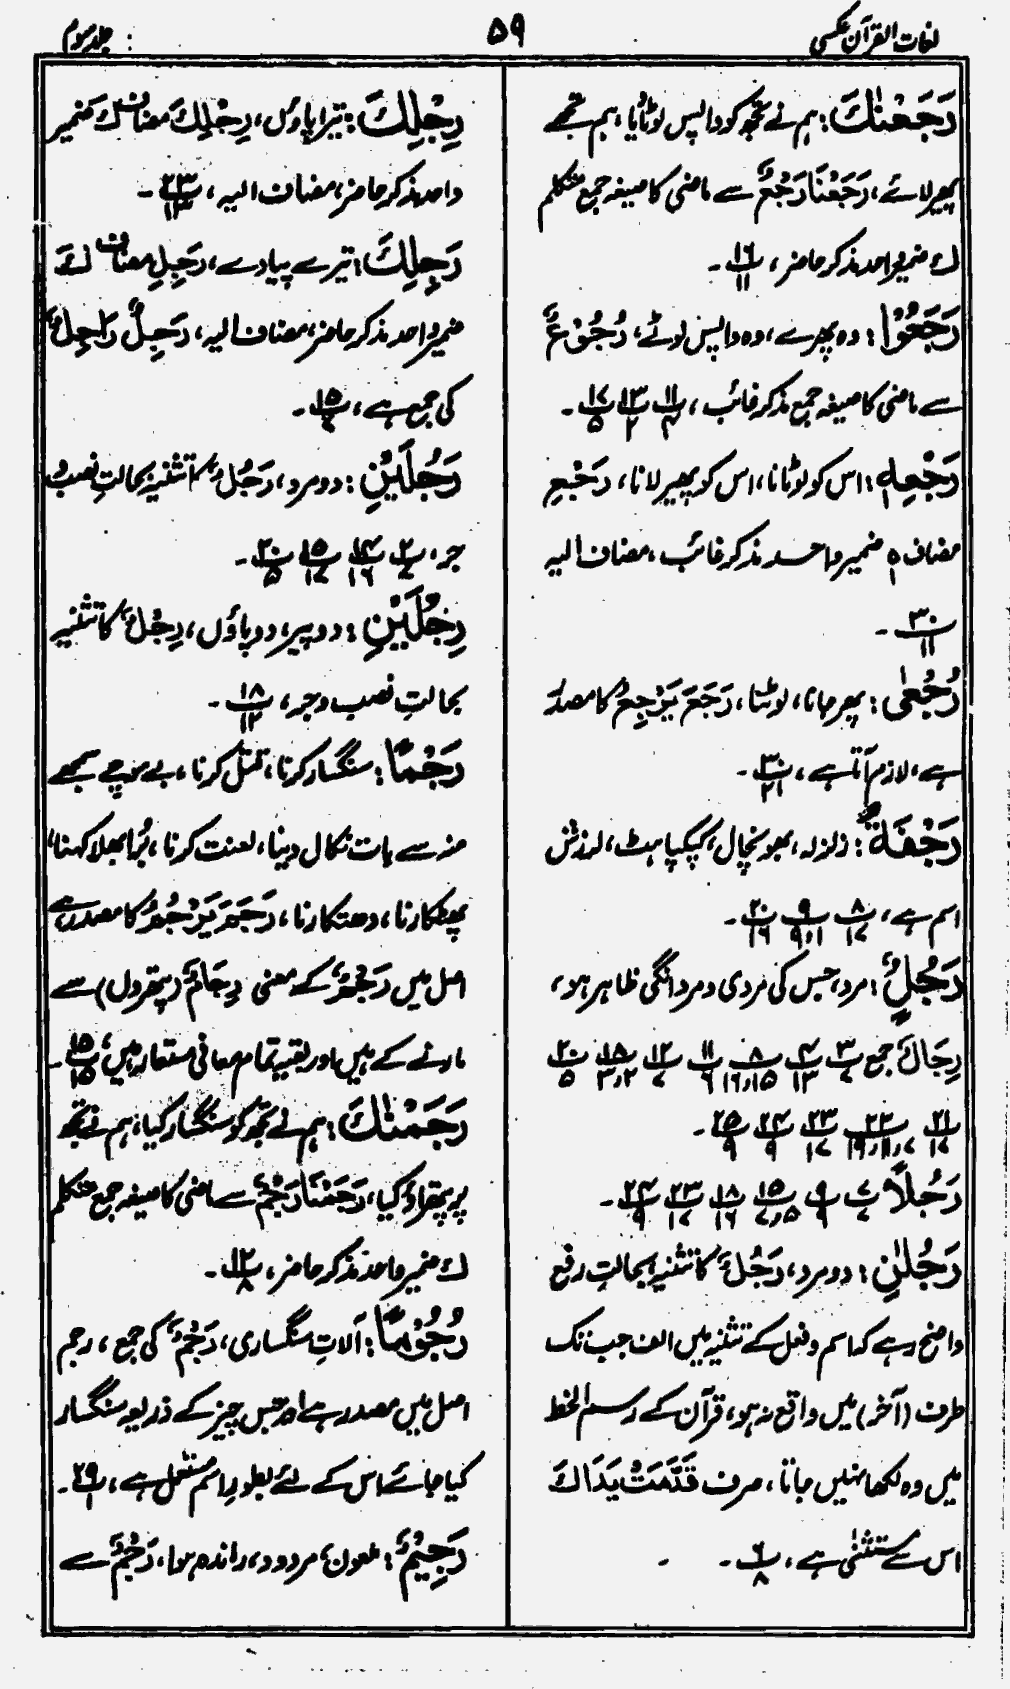 لغات القرآن عکسی
۵۹
جلد سوم
رَجَعْنٰكَ: ہم نے تجھ کو واپس لوٹایا، ہم تجھے
پھیر لائے، رَجَعْنَا رَجْعٌ سے ماضی کا صیغہ جمع متکلم
كَ ضمیر واحد مذکر حاضر، پ ۱۶/۱۱ ۔
رَجَعُوْا: وہ پھرے، وہ واپس لوٹے، رُجُوْعٌ
سے ماضی کا صیغہ جمع مذکر غائب، پ ۱۱/۴ پ ۱۳/۲ پ ۱۷/۵ ۔
رَجْعِهٖ: اس کو لوٹانا، اس کو پھیر لانا، رَجْعِ
مضاف ہ ضمیر واحد مذکر غائب، مضاف الیہ
پ ۳۰/۱۱ ۔
رُجْعٰى: پھر جانا، لوٹنا، رَجَعَ يَرْجِعُ کا مصدر
ہے، لازم آتا ہے، پ ۳۰/۲۱ ۔
رَجْفَةُ: زلزلہ، بھونچال، کپکپاہٹ، لرزش
اسم ہے، پ ۸/۱۷ پ ۹/۹،۱ پ ۲۰/۱۶ ۔
رَجُلٌ: مرد، جس کی مردی و مردانگی ظاہر ہو،
رِجَالٌ جمع پ ۳/۷ پ ۴/۱۳ پ ۸/۱۶،۱۵ پ ۱۱/۶ پ ۱۲/۷ پ ۱۸/۳،۲ پ ۲۰/۵
پ ۲۱/۱۷ پ ۲۲/۱۹،۱۸،۷ پ ۲۳/۱۷ پ ۲۴/۹ پ ۲۵/۹ ۔
رَجُلًا پ ۷/۷ پ ۹/۹ پ ۱۵/۷،۵ پ ۱۸/۱۶ پ ۲۳/۱۷ پ ۲۴/۹ ۔
رَجُلٰنِ: دو مرد، رَجُلٌ کا تثنیہ بحالتِ رفع
واضح رہے کہ اسم و فعل کے تثنیہ میں الف جب تک
طرف (آخر) میں واقع نہ ہو، قرآن کے رسم الخط
میں وہ لکھا نہیں جاتا، صرف قَدَّمَتْ يَدَاكَ
اس سے مستثنیٰ ہے، پ ۶/۸ ۔
رِجْلِكَ: تیرا پاؤں، رِجْلِكَ مضاف كَ ضمیر
واحد مذکر حاضر، مضاف الیہ، پ ۲۳/۱۳ ۔
رَجِلِكَ: تیرے پیادے، رَجِلِ مضاف كَ
ضمیر واحد مذکر حاضر، مضاف الیہ، رَجِلٌ رَاجِلٌ
کی جمع ہے، پ ۱۵/۷ ۔
رَجُلَيْنِ: دو مرد، رَجُلٌ کا تثنیہ بحالتِ نصب و
جر، پ ۳/۷ پ ۱۴/۱۶ پ ۱۵/۱۷ پ ۲۰/۵ ۔
رِجْلَيْنِ: دو پیر، دو پاؤں، رِجْلٌ کا تثنیہ
بحالتِ نصب و جر، پ ۱۸/۱۲ ۔
رَجْمًا: سنگسار کرنا، قتل کرنا، بے سوچے سمجھے
منہ سے بات نکال دینا، لعنت کرنا، بُرا بھلا کہنا،
پھٹکارنا، دھتکارنا، رَجَمَ يَرْجُمُ کا مصدر ہے
اصل میں رَجْمٌ کے معنی رِجَامٌ (پتھروں) سے
مارنے کے ہیں اور بقیہ تمام معانی مستعار ہیں، پ ۱۵/۱۵ ۔
رَجَمْنٰكَ: ہم نے تجھ کو سنگسار کیا، ہم نے تجھ
پر پتھراؤ کیا، رَجَمْنَا رَجْمٌ سے ماضی کا صیغہ جمع متکلم
كَ ضمیر واحد مذکر حاضر، پ ۱۲/۸ ۔
رُجُوْمًا: آلاتِ سنگساری، رَجْمٌ کی جمع، رجم
اصل میں مصدر ہے اور جس چیز کے ذریعہ سنگسار
کیا جائے اس کے لئے بطور اسم مستعمل ہے، پ ۲۹/۱ ۔
رَجِيْمٌ: ملعون، مردود، راندہ ہوا، رَجْمٌ سے